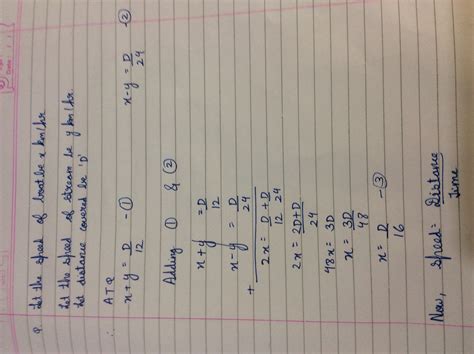 Q. Let the speed of boat be x km/hr
Let the speed of stream be y km/hr
Let distance covered be 'D'
∴ ATQ
x+y = D/12 - ① x-y = D/24 - ②
Adding ① & ②
x+y = D/12
x-y = D/24
+
2x = D/12 + D/24
2x = 2D+D/24
48x = 3D
x = 3D/48
x = D/16 - ③
Now, Speed = Distance/Time